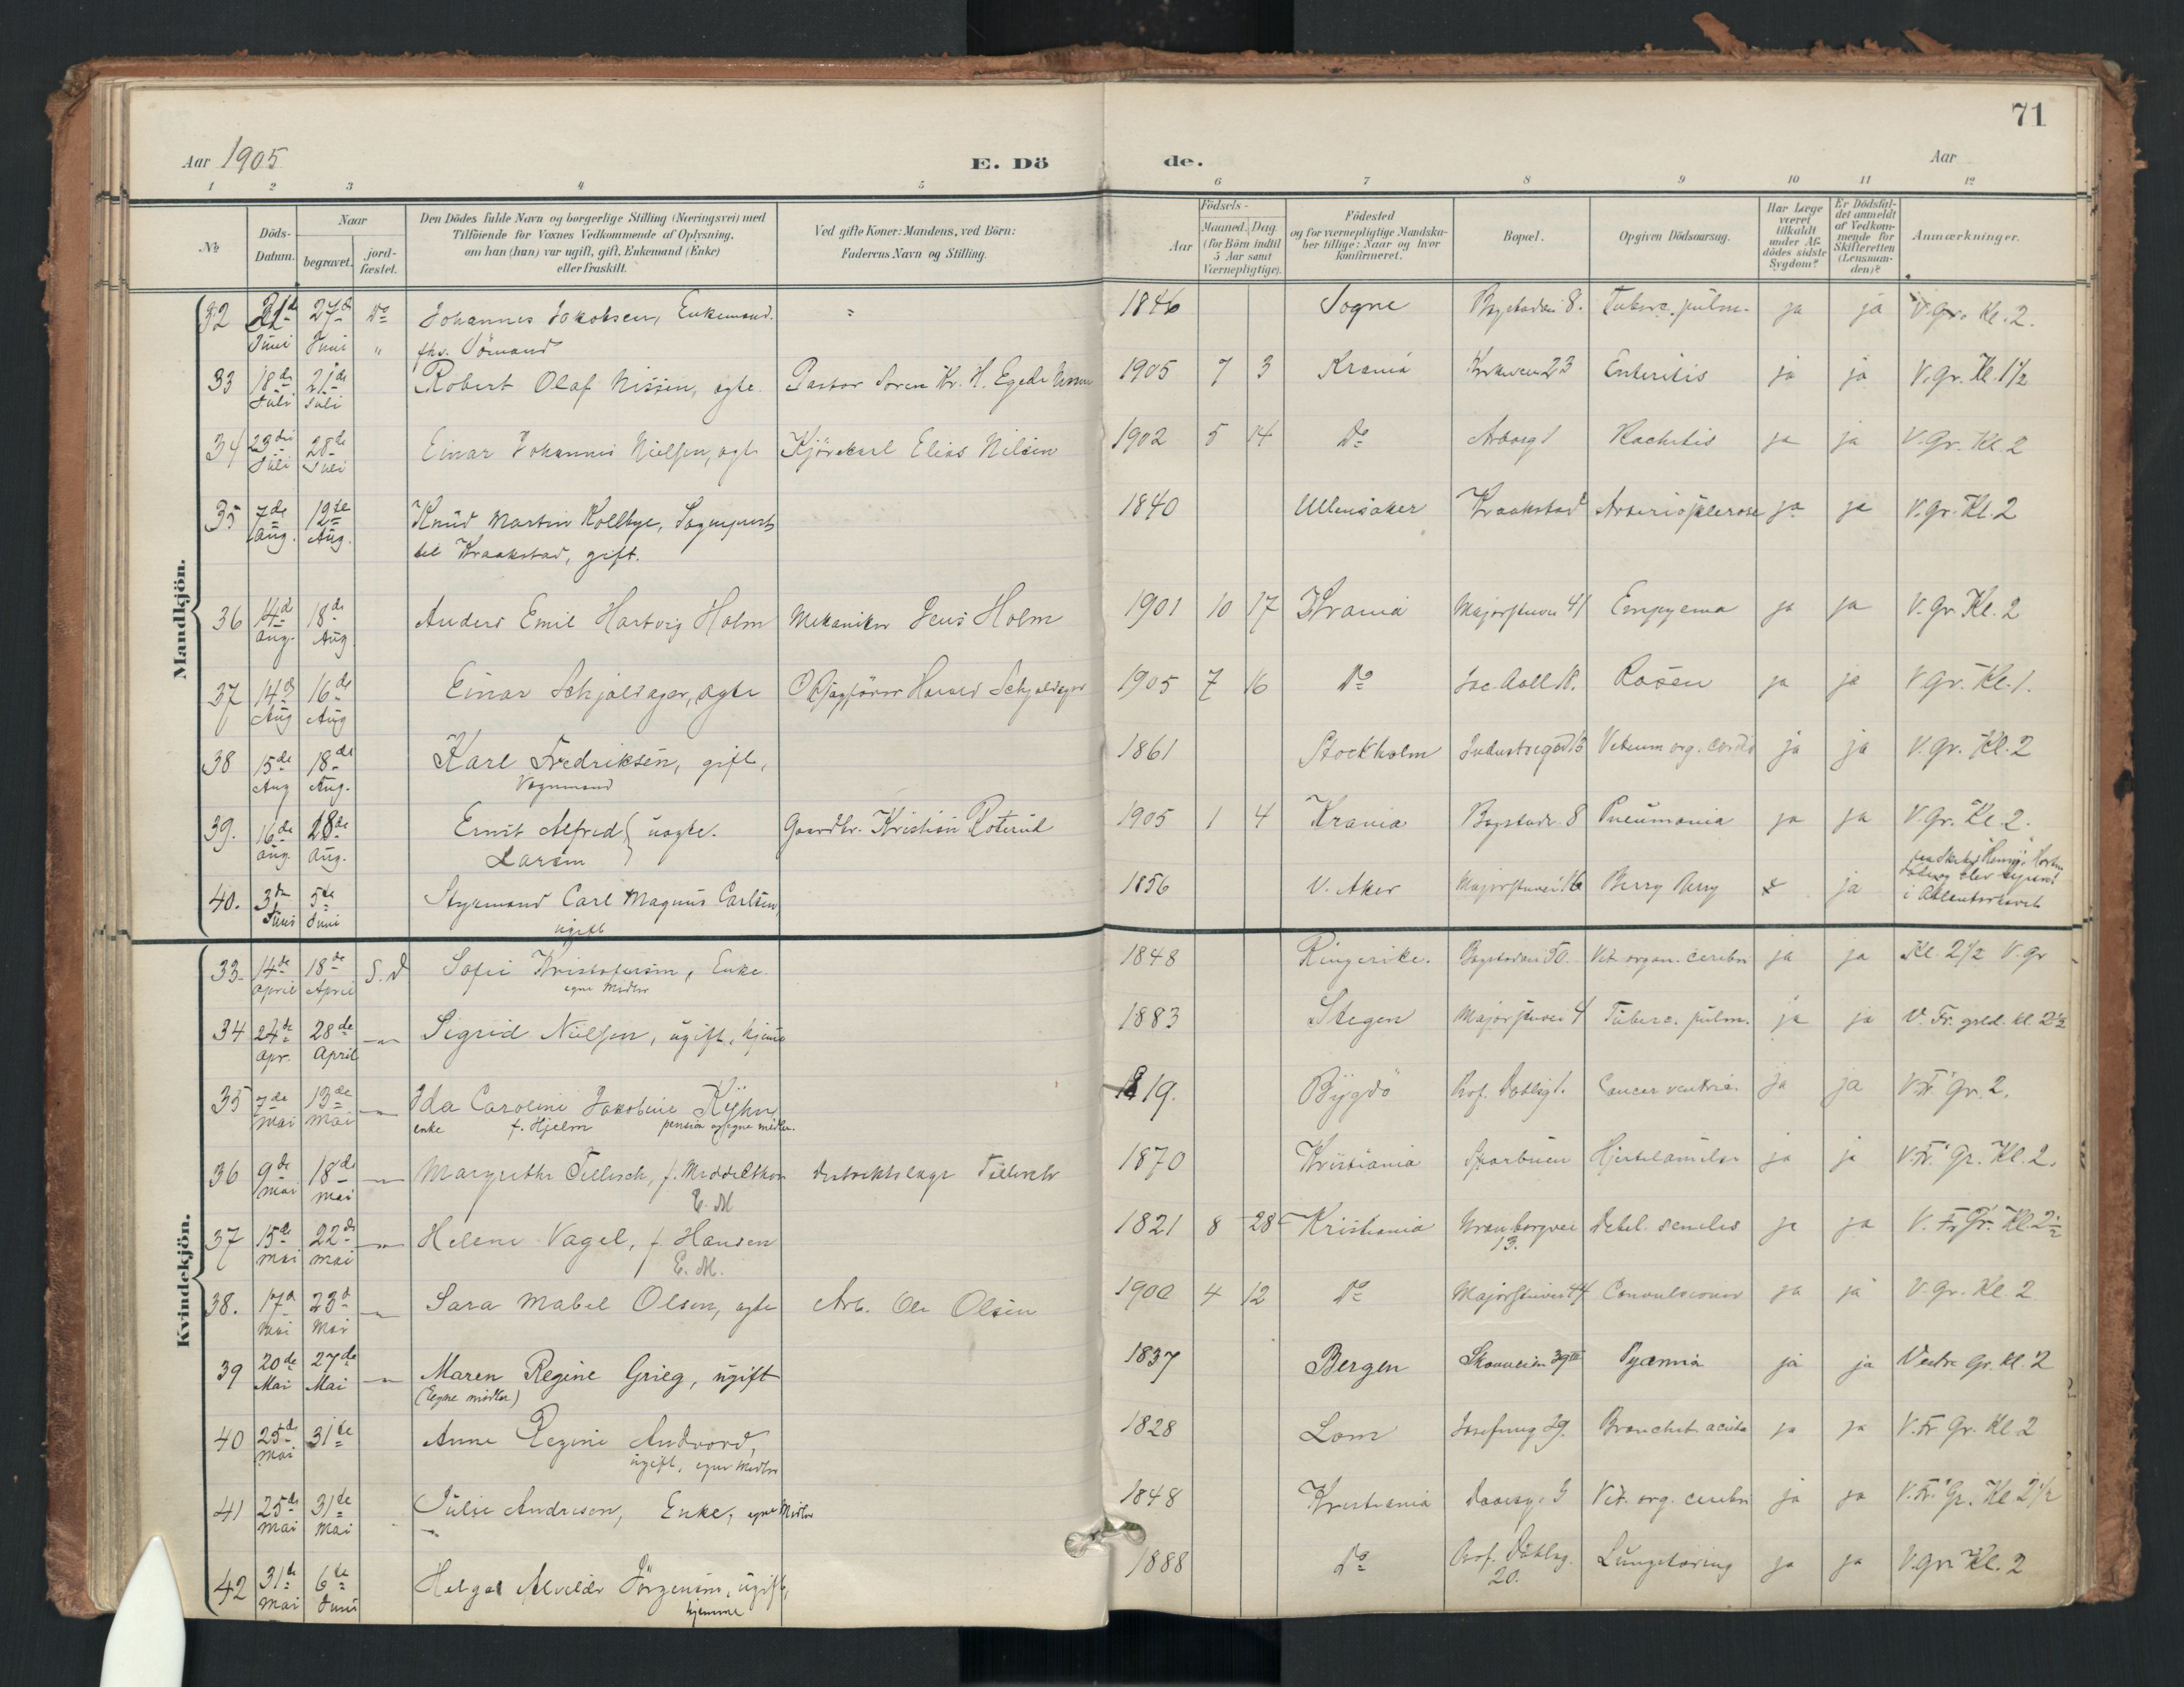 71
Aar 1905
E. Dö
de.
Aar
1 2 3 4 5 6 7 8 9 10 11 12
No
Döds-Datum.
Naar
begravet.
jord-fæstet.
Den Dödes fulde Navn og borgerlige Stilling (Næringsvei) med
Tilföiende for Voxnes Vedkommende af Oplysning,
om han (hun) var ugift, gift, Enkemand (Enke)
eller fraskilt.
Ved gifte Koner: Mandens, ved Börn:
Faderens Navn og Stilling.
Födsels-
Aar
Maaned. Dag
(for Börn indtil
5 Aar samt
Værnepligtige).
Födested
og for værnepligtige Mandska-
ber tillige: Naar og hvor
konfirmeret.
Bopæl.
Opgiven Dödsaarsag.
Har Læge
været
tilkaldt
under Af-
dödes sidste
Sygdom?
Er Dödsfal-
det anmeldt
af Vedkom-
mende for
Skifteretten
(Lensman-
den)?
Anmærkninger.
Mandkjön.
32 Juni 27de Juni Do " Johannes Jakobsen, Enkemand. 1846 Sogne 8. Tuberc. pulm. ja ja V. gr. Kl. 2.
fhv. Sömand
33 18de Juli 21de Juli Robert Olaf Nissen, ægte Pastor Sören Kr. H. Egede Nissen 1905 7 3 Krania 23 Enteritis ja ja V. Gr. Kl. 1½
34 23die Juli 28de Juli Einar Johannes Nielsen, ægte Kjörekarl Elias Nilsen 1902 5 14 Do Arbosg 1 Rachitis ja ja V. Gr. Kl. 2
35 7de Aug. 12te Aug. Knud Martin Kolbye, Sogneprest 1840 Ullensaker Kraakstad ja ja V. gr. Kl. 2
til Kraakstad, gift.
36 14de Aug. 18de Aug Anders Emil Hartvig Holm Mekaniker Jens Holm 1901 10 17 Krania Majorstuvei 41 Empyema ja ja V. Gr. Kl. 2
37 14de Aug 16de Aug Einar Schjoldager, ægte O.R.sagförer Harald Schjoldager 1905 7 16 Do Rosen ja ja V gr. Kl. 1.
38 15de Aug 18de Aug. Karl Fredriksen, gift, 1861 Stockholm Industrigd 15 Vitium org. cordis ja ja V. gr. Kl. 2
Vognmand
39. 16de Aug. 28de Aug. Ernst Alfred uægte. Gaardbr. Kristian Roterud 1905 1 4 Krania Bogstadv 8 Pneumonia ja ja V. Gr. Kl. 2.
Larsen
40. 3die Juni 5te Juni Styrmand Carl Magnus Carlsen, 1856 V. Aker Majorstuvei 16 Berry Berry ja
ugift
i Atlanterhavet
Kvindekjön.
33. 14de April 18de April S. D Sofie Kristofersen, Enke. 1848 Ringerike. Bogstadvei 50. Vit. organ. cerebri ja ja Kl. 2½ V. gr
egne Midler
34 24de Apr. 28de April —"— Sigrid Nielsen, ugift, hjeme 1883 Stegen Majorstuvei 4 Tuberc. pulm. ja ja V. Fr. grld. kl. 2½
35 7de Mai 13de Mai —"— Ida Caroline Jakobine Kyhn, 1819. Bygdö Prof. Dahlsg 1. Cancer ventric. ja ja V. Fr. gr. 2.
enke f. Hjelm pension og egne midler.
36 9de Mai 18de Mai —"— Margrethe Tillisch, f. Middelthon Distriktslæge Tillisch 1870 Kristiania Sparbuen Hjertelamelse ja ja V. Fr. Gr. Kl. 2.
E. M
37 15de Mai 22de Mai —"— Helene Vagel, f. Hansen 1821 8 28 Kristiania 13. Debil. senilis ja ja V. Fr. Gr. Kl. 2½
E. M.
38. 17de Mai 23de Mai —"— Sara Mabel Olsen, ægte Arb. Ole Olsen 4 12 Do Majorstuvei 44 Convulsioner ja ja V. Gr. Kl. 2
39 20de Mai 27de Mai —"— Maren Regine Grieg, ugift 1837 Bergen Skovveien 39 III Pyæmia ja ja Vestre Gr. kl. 2
(Egne midler)
40 25de Mai 31te Anne Regine Andvord, 1828 Lom Josefinsg 29. Bronchit. acuta ja ja V. Fr. Gr. Kl. 2
ugift, egne Midler
41 25de Mai 31te Mai Julie Andresen, Enke, egne Midler 1848 Kristiania Daasg. 5 Vit. org. cerebri ja ja V. Fr. Gr. Kl. 2½
42 31te Mai 6te Juni Helga Alvilde Jörgensen, ugift, 1888 Do Prof. Dahlsg. 20. Lungetæring ja ja V. gr. Kl. 2
hjemme